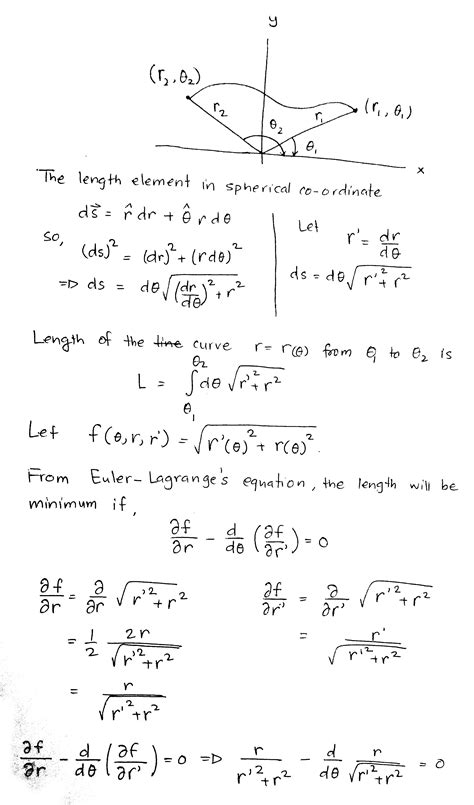 y
(r₂, θ₂)
(r₁, θ₁)
r₂
r₁
θ₂
θ₁
x
The length element in spherical co-ordinate
ds⃗ = r̂ dr + θ̂ r dθ
so, (ds)² = (dr)² + (r dθ)²
=> ds = dθ √((dr/dθ)² + r²)
Let r' = dr/dθ
ds = dθ √(r'² + r²)
Length of the line curve r = r(θ) from θ₁ to θ₂ is
L = ∫_θ₁^θ₂ dθ √(r'² + r²)
Let f(θ, r, r') = √(r'(θ)² + r(θ)²).
From Euler-Lagrange's equation, the length will be
minimum if,
∂f/∂r - d/dθ (∂f/∂r') = 0
∂f/∂r = ∂/∂r √(r'² + r²)
= 1/2 2r/√(r'² + r²)
= r/√(r'² + r²)
∂f/∂r' = ∂/∂r' √(r'² + r²)
= r'/√(r'² + r²)
∂f/∂r - d/dθ (∂f/∂r') = 0 => r/r'² + r² - d/dθ r/√(r'² + r²) = 0